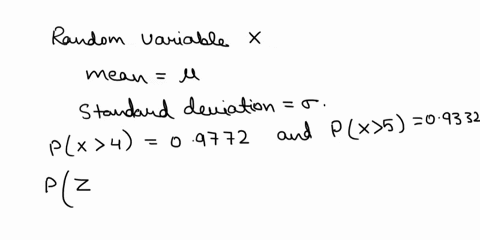 Random variable X
mean = μ
Standard deviation = σ.
P(X>4) = 0.9772 and P(X>5) = 0.9332
P(Z